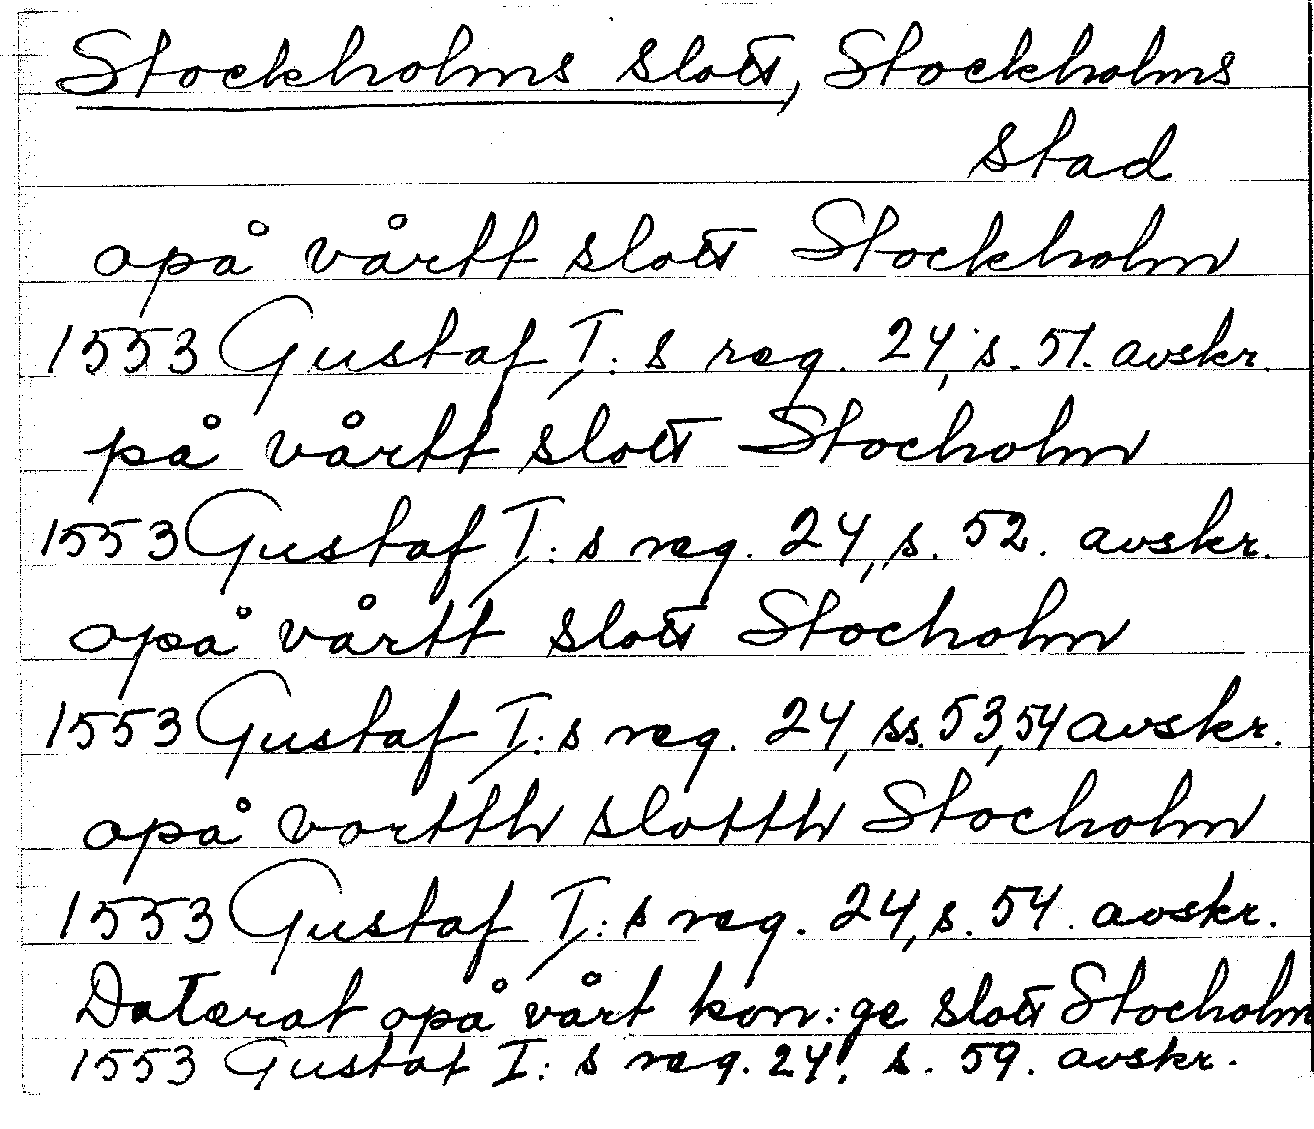 Stockholms slott, Stockholms
stad
opå vårtt slott Stockholm
1553 Gustaf I: s reg. 24, s. 51. avskr.
på vårtt slott Stocholm
1553 Gustaf I: s reg. 24, s. 52. avskr.
opå vårtt slott Stocholm
1553 Gustaf I: s reg. 24, ss. 53, 54 avskr.
opå vortth slotth Stocholm
1553 Gustaf I: s reg. 24, s. 54. avskr.
Daterat opå vårt kon:ge slott Stocholm
1553 Gustaf I: s reg. 24, s. 59. avskr.